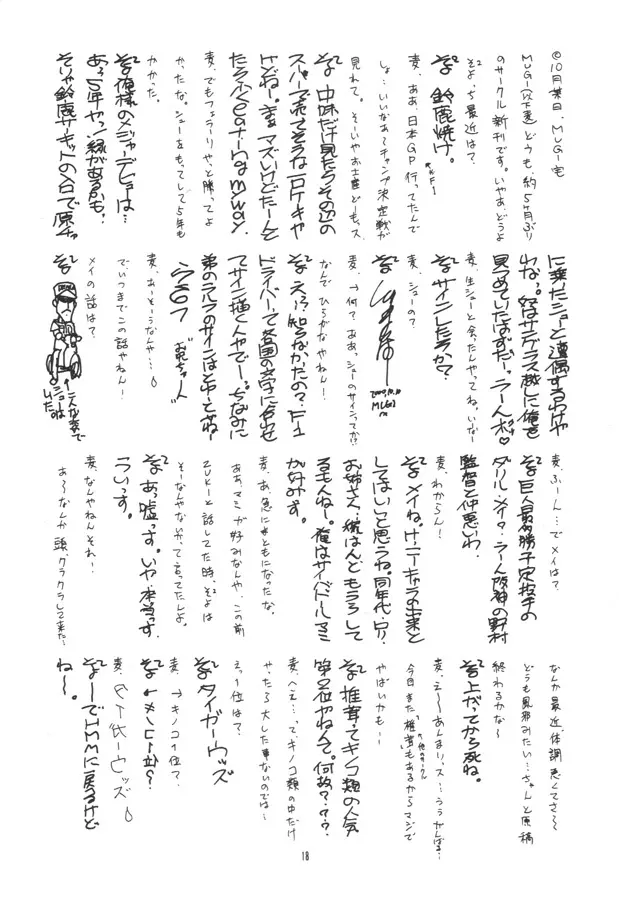 ©10月某日、MUGI宅
MUGI(以下麦) どうも、約5ヶ月ぶり
のサークル新刊です。いやあ、どうよ
そよ、最近は？
そよ² 鈴鹿焼け。
※F1
麦、ああ、日本GP行ってたんで
しょ…いいなあてチャンプ決定戦が
見れて。そういやお土産どーも、ス
そよ² 中味だけ見たらその辺の
スーパーで売ってそうな一口ケーキや
けどねー。まぁ マズいけどたーんと
たらふく eating my way.
麦、でもフェラーリやっと勝ってよ
やったな。シューをもってして5年も
かかった。
そよ² 俺様のヘジャーデビューは…
あっ5年や、ソ！縁があるかも。
そりゃ鈴鹿サーキットの入口で原チャ
に乗ったシューと遭遇するわけや
わな。奴はサングラス越しに俺を
見つめていたはずだ。うーん
麦、生シューと会ったんやってね。いいなー
そよ² サインしたろか？
麦、シューの？
そよ²
2000.10.10
MUGI
麦、→何？ああ、シューのサインってか？
なんで ひらがなやねん！
そよ² えっ？知らなかったの？F1
ドライバーて各国の文字に合わせ
てサイン描くんやでー。ちなみに
弟のラルフのサインはどやとねー
らるフ お兄ちゃーん
麦、あーそうなんや…
で、いつまでこの話やねん！
メイの話は？
そよ²
↑一人が変で
シューのは
いた
麦、ふーん…でメイは？
そよ² 巨人最多勝予定投手の
ダリル・メイ？うーん阪神の野村
監督と仲悪いわ。
麦、わからん！
そよ² メイね。けーキャラの出来と
してはいいと思うね。同年代・ロリ・
お姉さん…続はんどもうろして
るもんねー。俺はサイバドールマミ
が好みす。
麦、あ、急にまともになったな。
ああ、マミが好みなんや、この前
ZUKEと話してた時、そよは
そーなんやないかって言ってたんよ。
そよ² あっ嘘っす。いや、本当っす。
ういっす。
麦、なんやねんそれ！
あ〜なんか頭、クラクラして来た…
なんか最近、体調悪くてさ〜
どうも風邪みたい…ちゃんと原稿
終わるかな〜
そよ² 上がってから死ね。
麦、え〜あんまり、ス…ううがんばる…
今日また“椎茸”もあるからマジで
やばいかも…
そよ² 椎茸ってキノコ類の人気
第2位やねんて。何故？？？
麦、へえ…って、キノコ類の中だけ
やったら大した事ないのでは〜
えっ1位は？
そよ² タイガーウッズ
麦、→キノコ1位？
そよ²
麦、
そよ² ーでHMに戻るけど
ね〜。
18